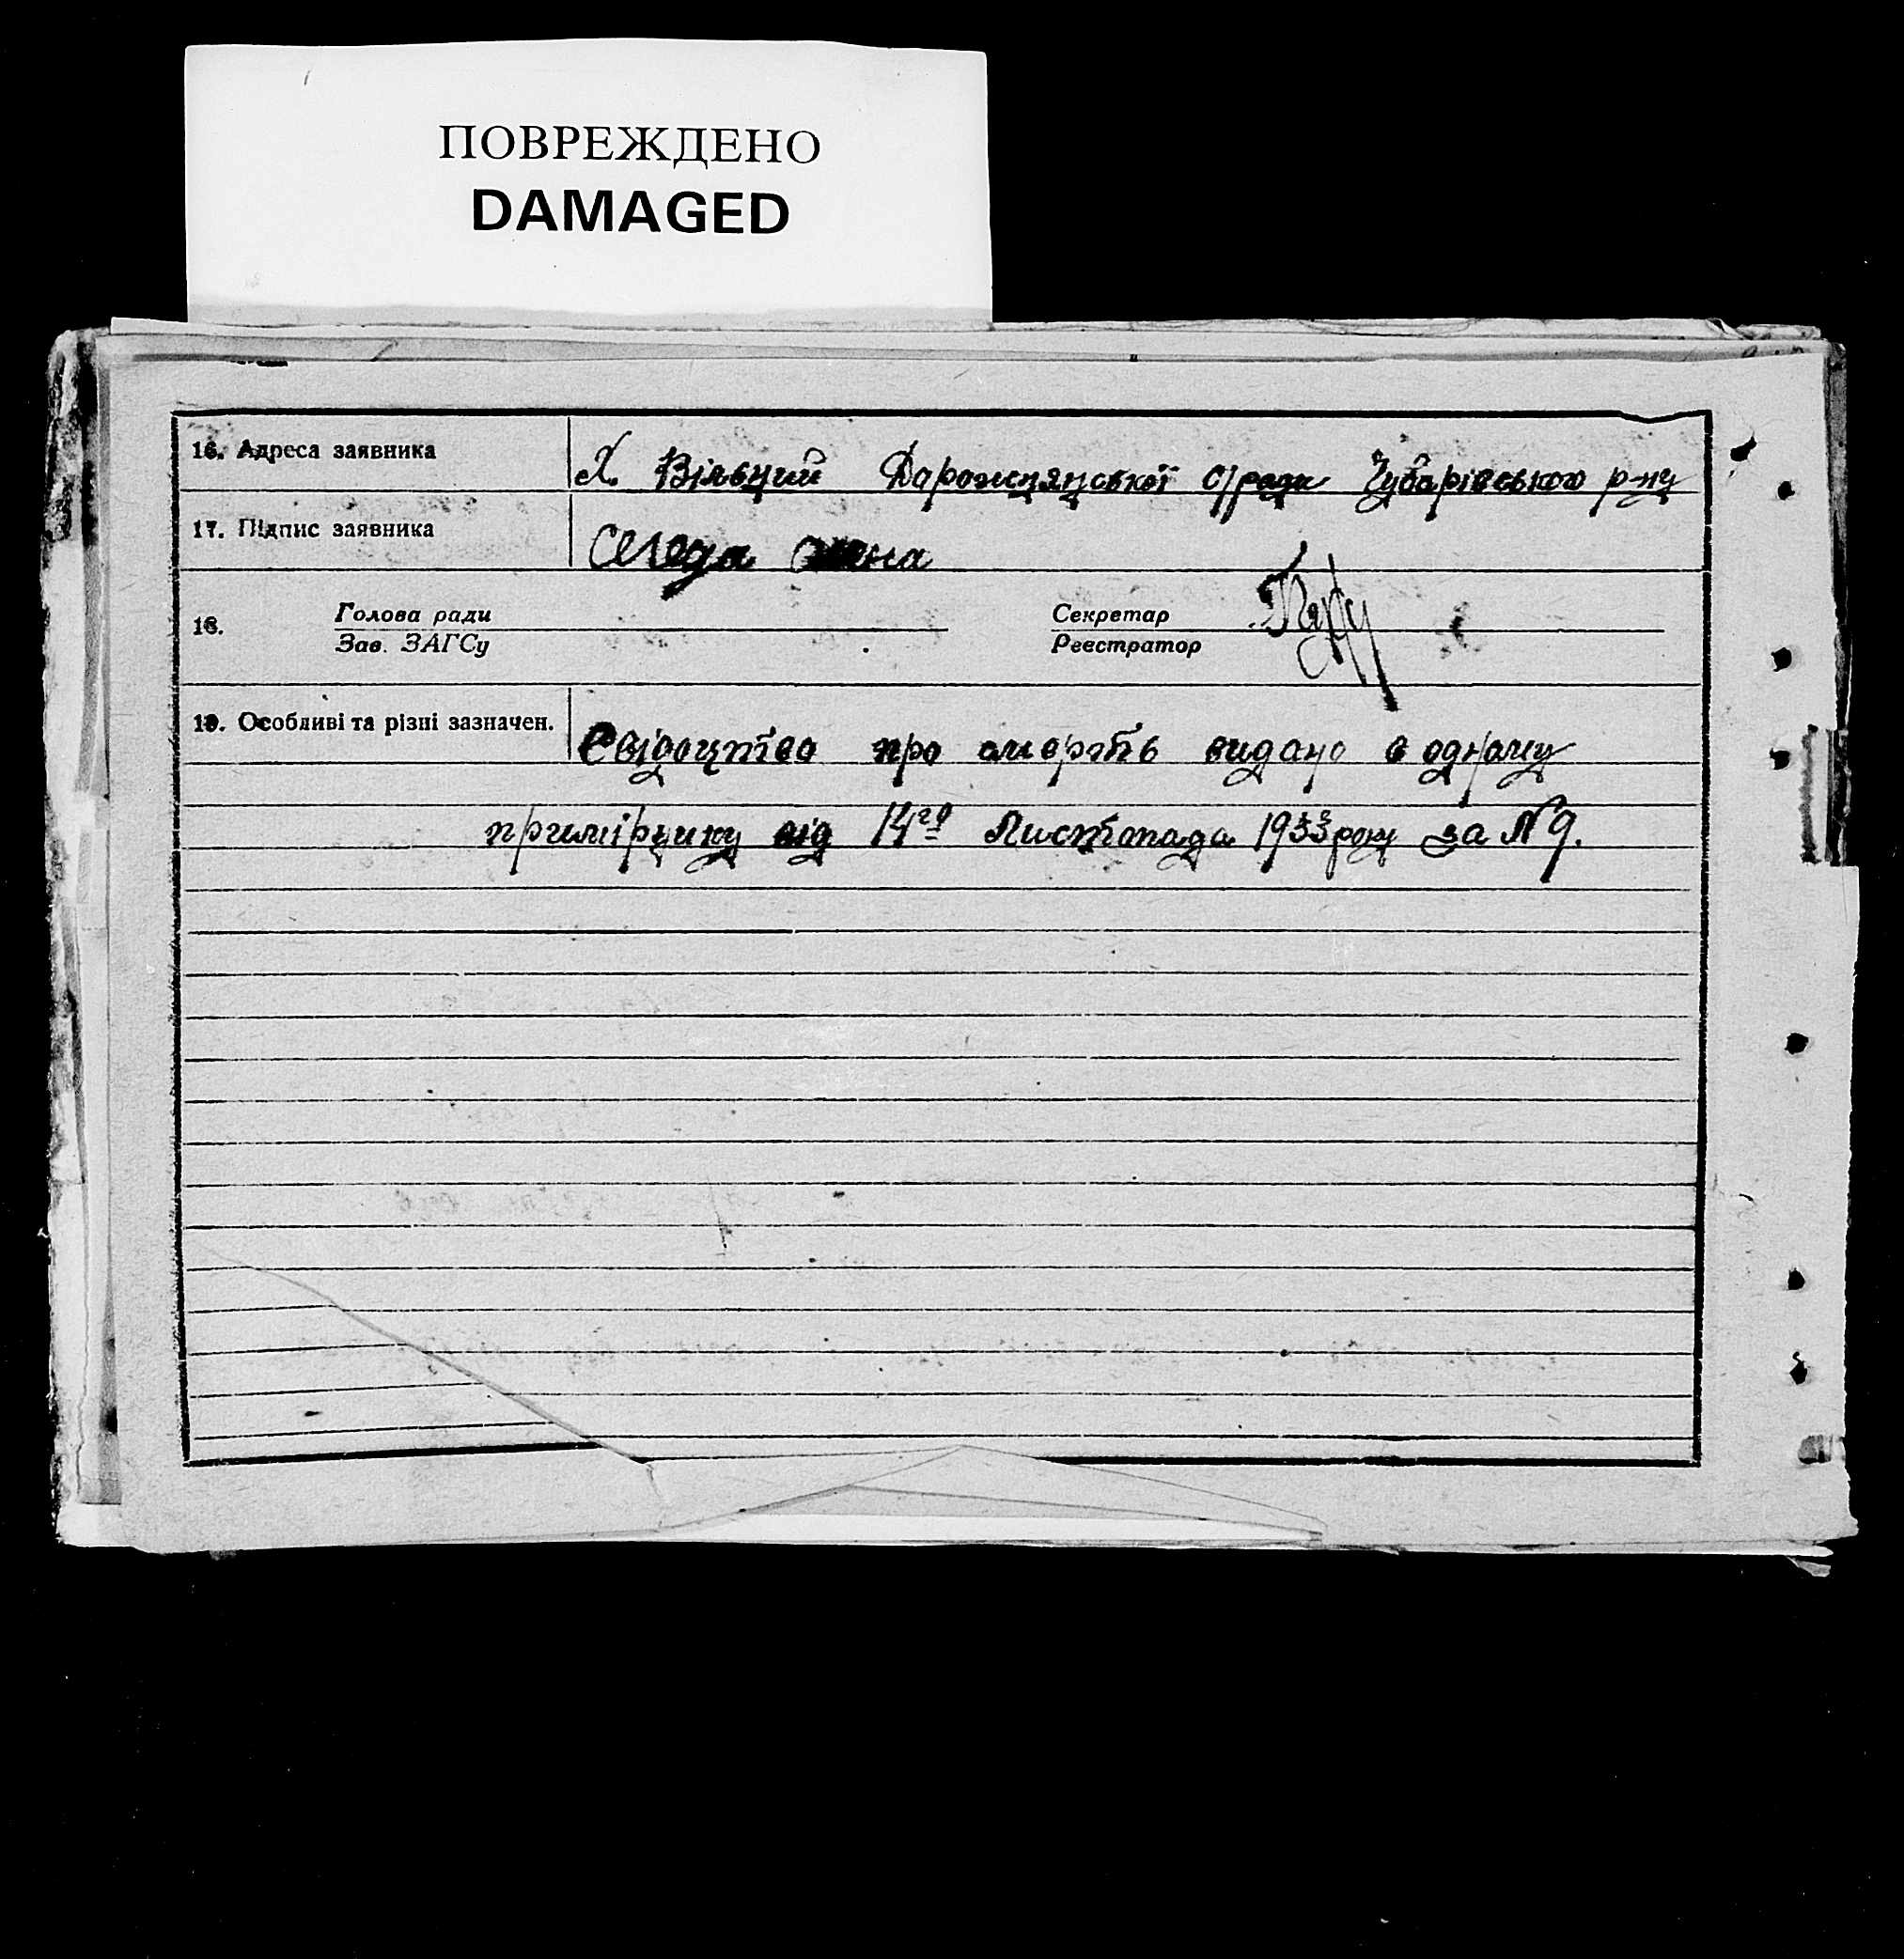 ПОВРЕЖДЕНО
DAMAGED
16. Адреса заявника Х. Вільний Дарожнянської с/ради Чубарівського р-ну
17. Підпис заявника Сегеда
18. Голова ради Секретар
Зав. ЗАГСу Реєстратор
19. Особливі та різні зазначен. Свідоцтво про смерть видано в одному
примірнику від 14го Листопада 1933 року за № 9.